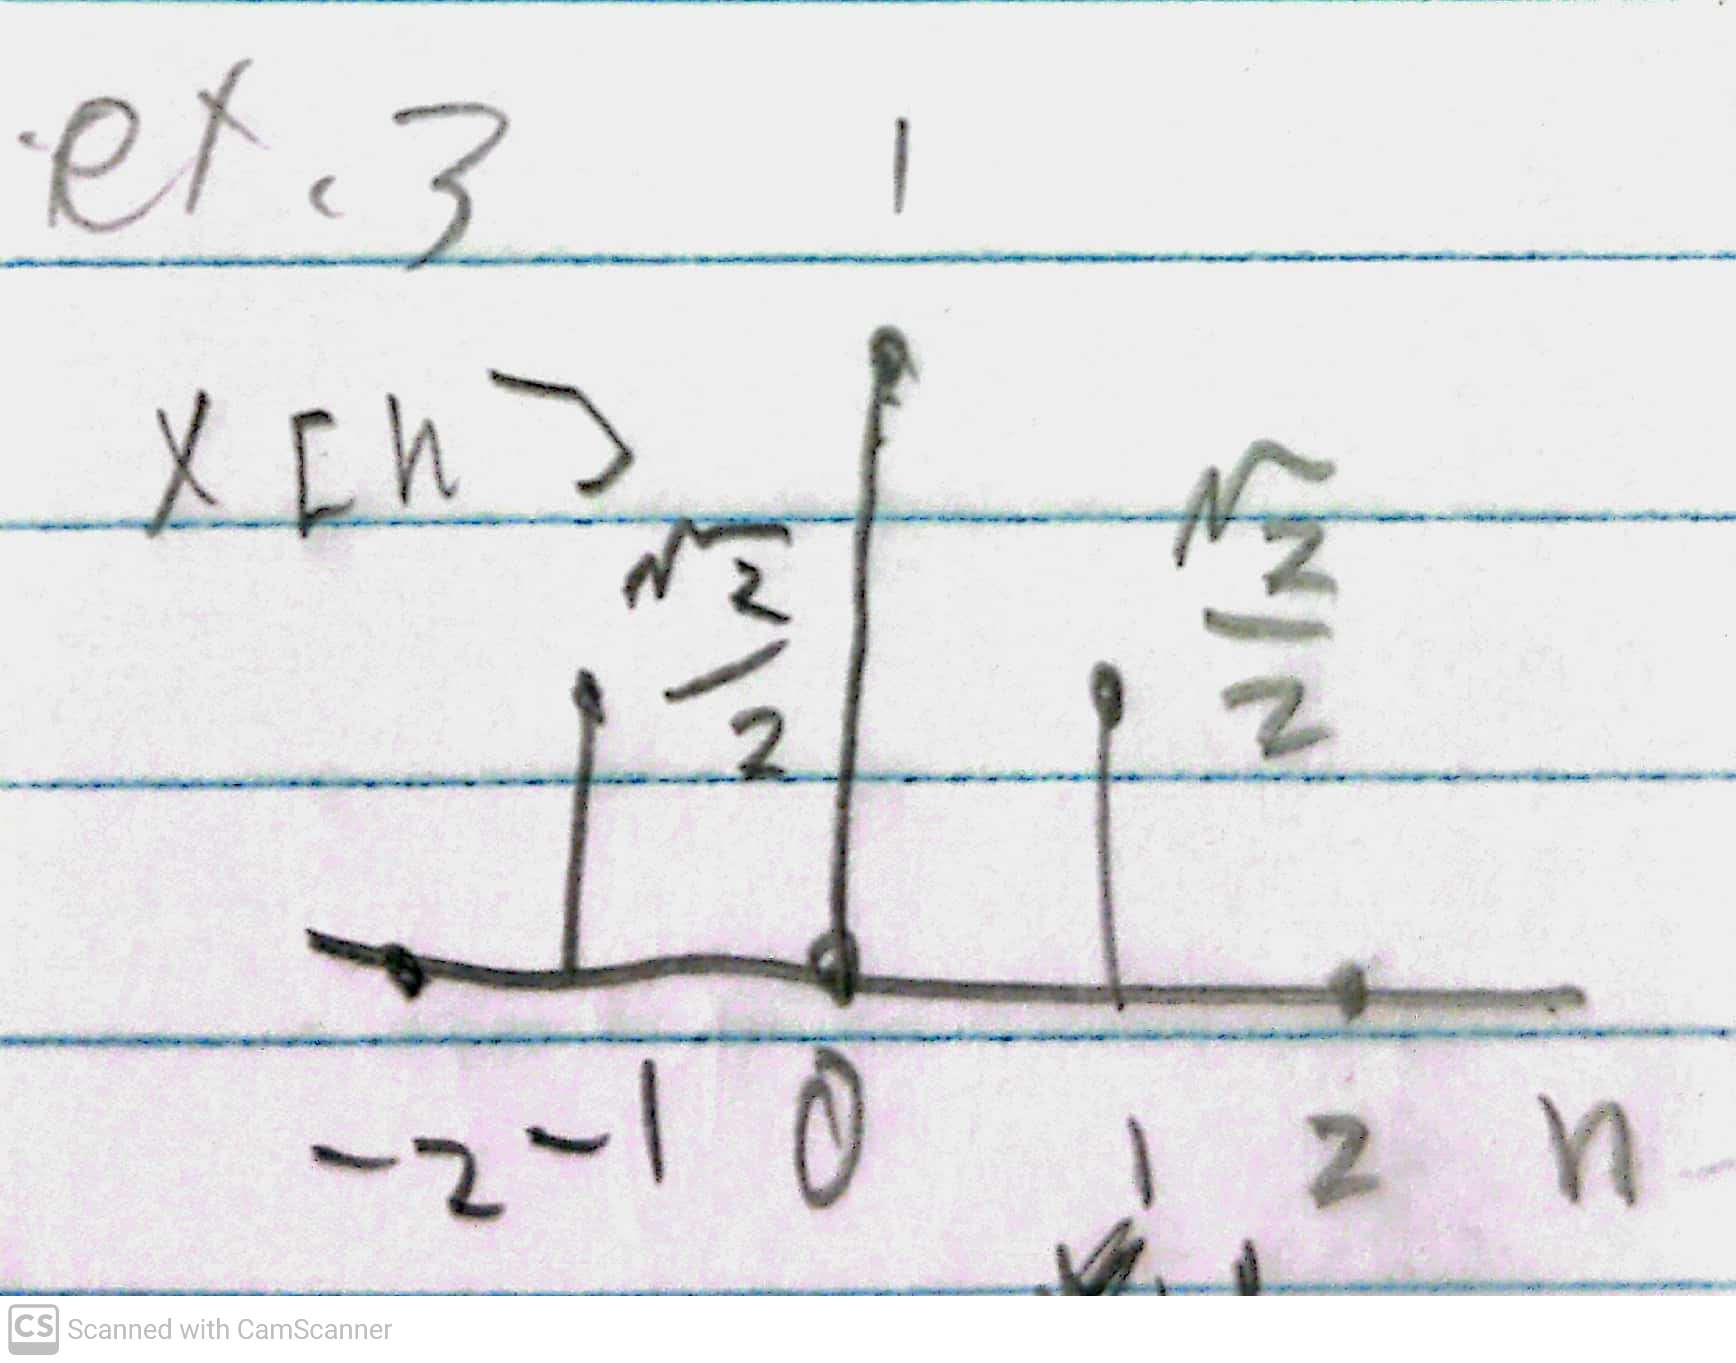 ex. 3
1
x[n]
√2/2
√2/2
-2 -1 0 1 2 n
CS Scanned with CamScanner